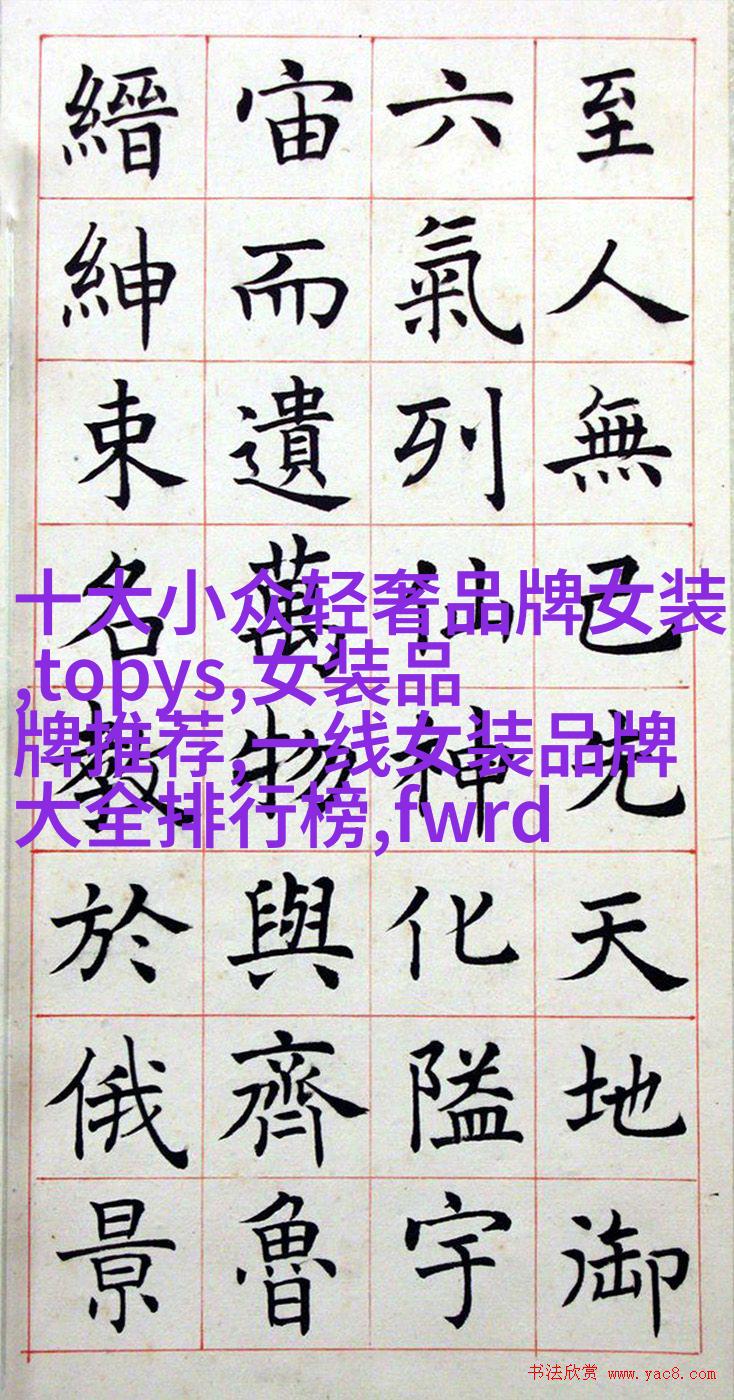 至人無己先天地御
六氣列仙神化隘宇
宙而遺萬物與齊魯
縉紳束名教於俄景
十大小众轻奢品牌女装
,topys,女装品
牌推荐,一线女装品牌
大全排行榜,fwrd
书法欣赏 www.yac8.com